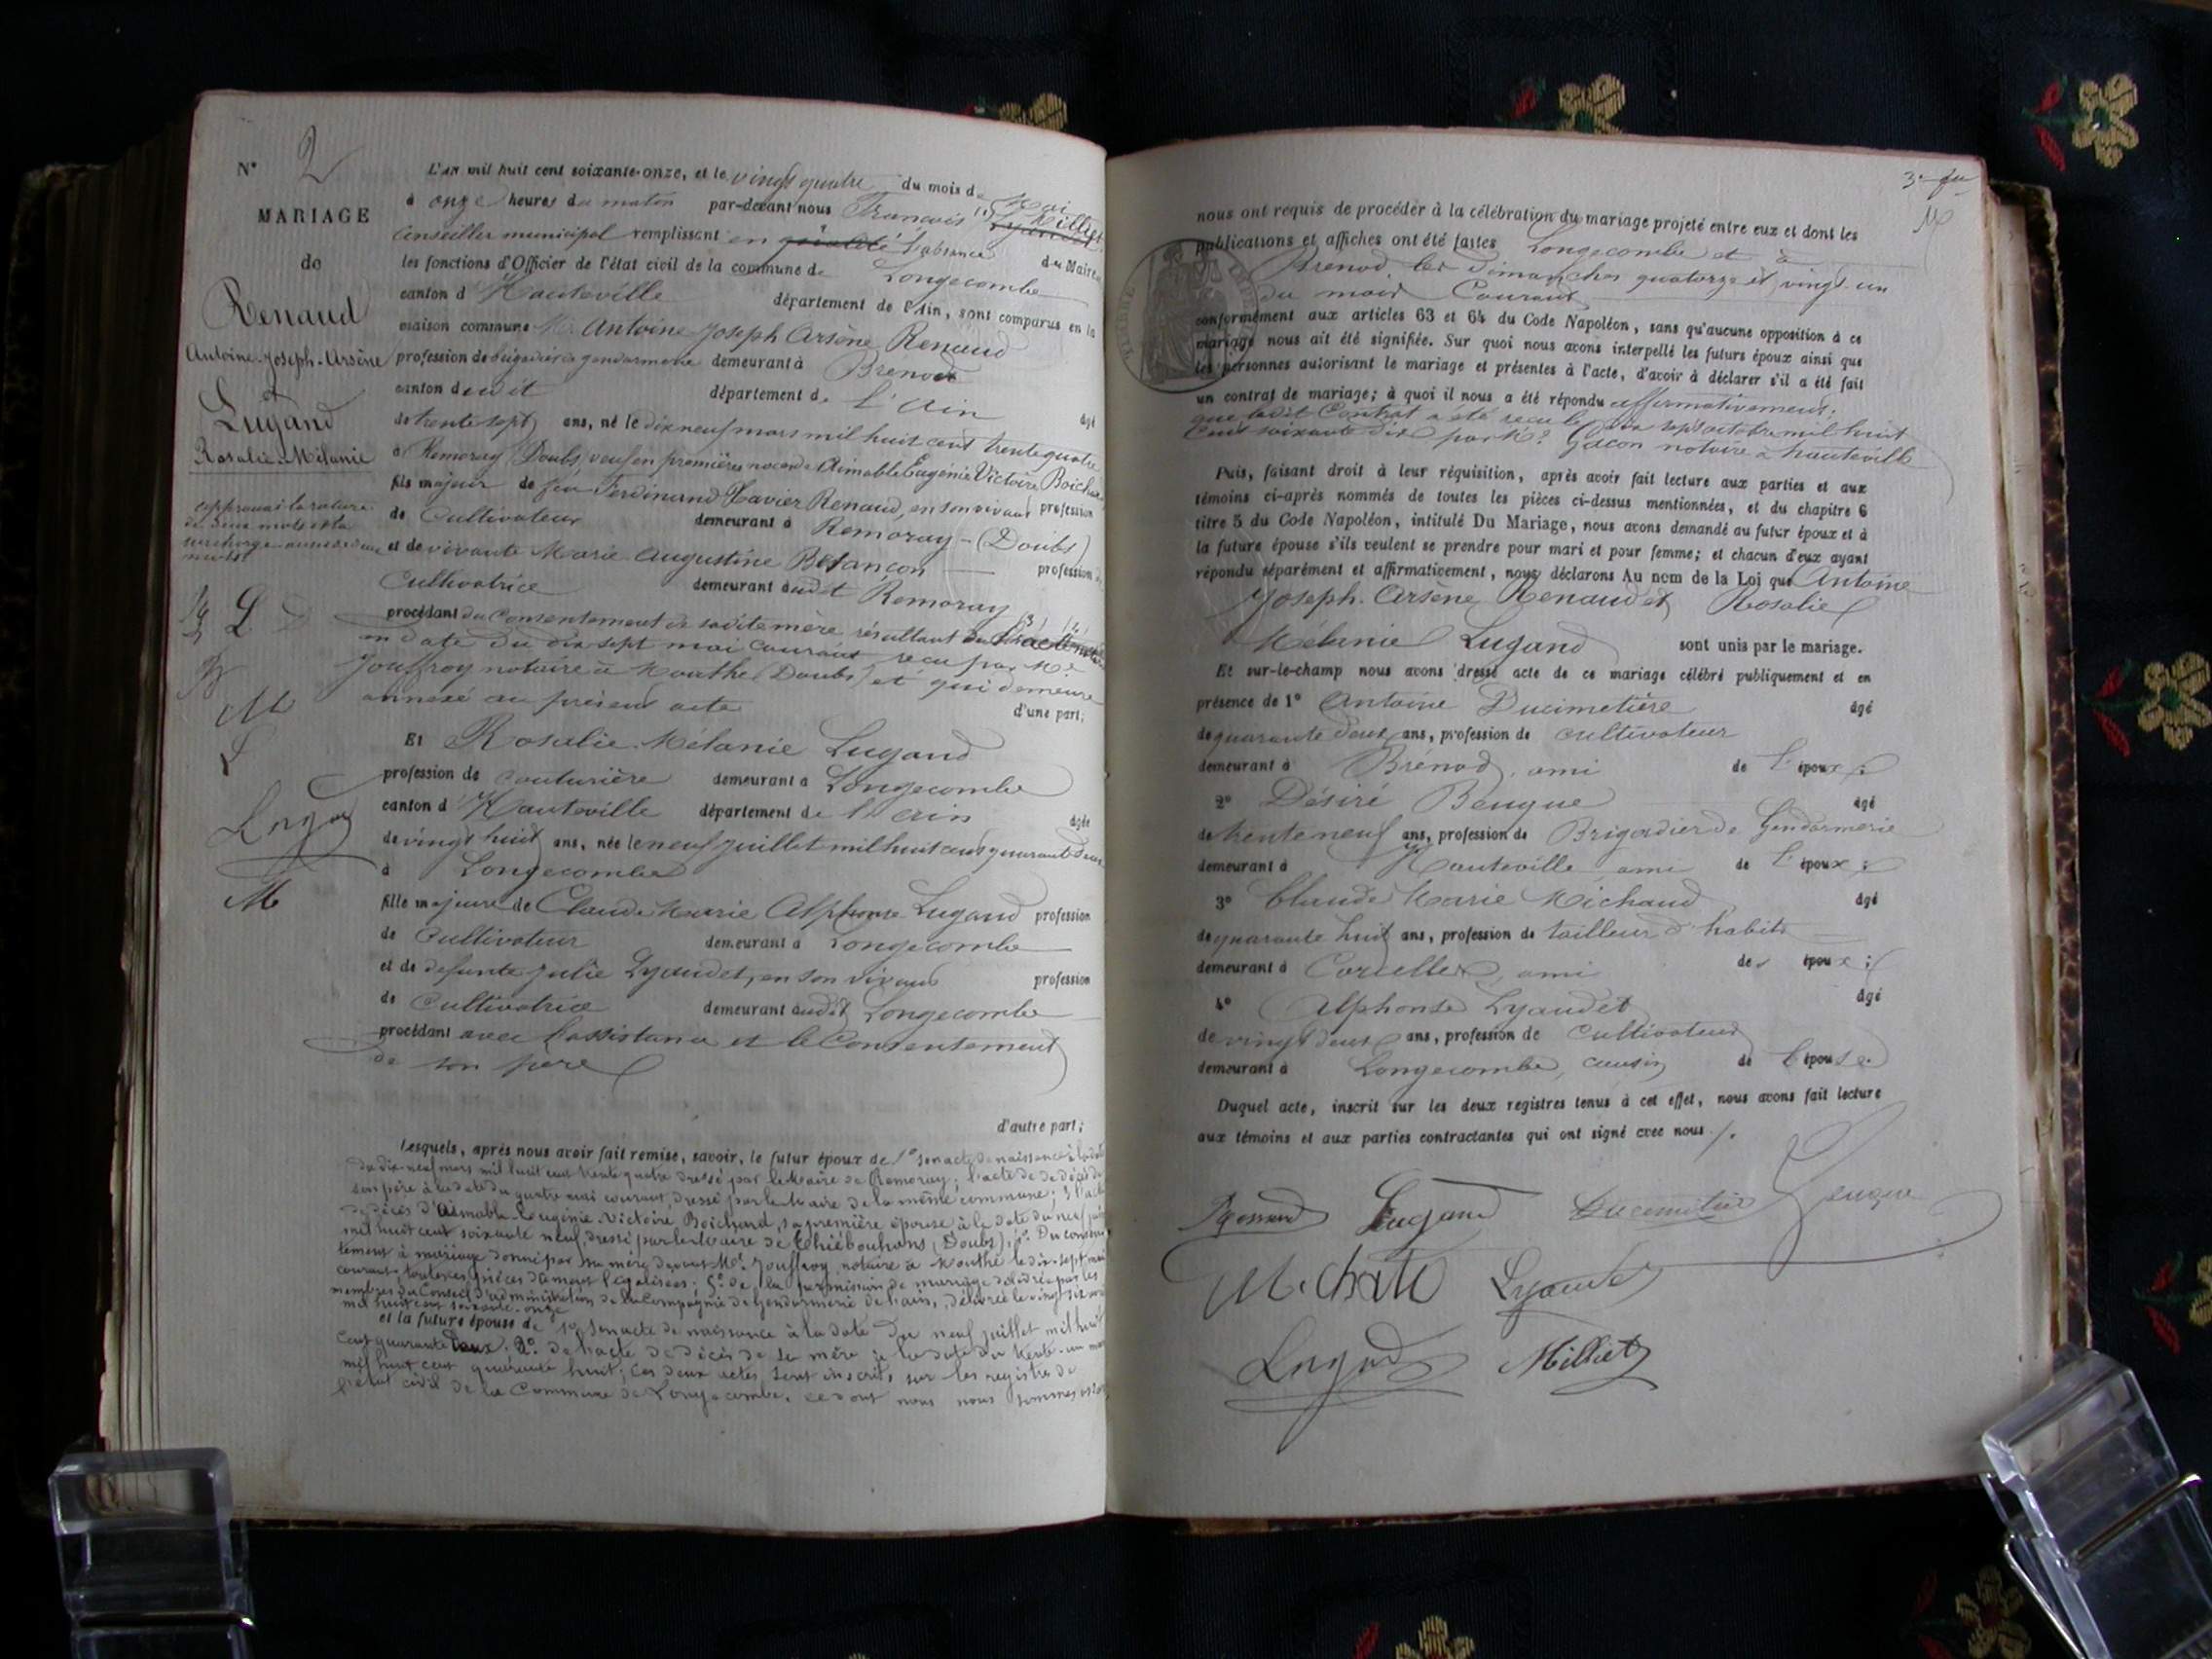 N° 2
MARIAGE
de
Renaud
Antoine-Joseph-Arsène
et
Lugand
Rosalie-Mélanie
approuvé la rature
de deux mots et la
surcharge
mots
L
M
L
Lugand
M
L'an mil huit cent soixante-onze, et le vingt quatre du mois de Mai
à onze heures du matin par-devant nous François Milliet
Conseiller municipal remplissant en l'absence du Maire
les fonctions d'Officier de l'état civil de la commune de Longecombe
canton d'Hauteville département de l'Ain, sont comparus en la
maison commune M. Antoine Joseph Arsène Renaud
profession de Brigadier de gendarmerie demeurant à Brenod
canton dudit département de L'Ain âgé
de trente sept ans, né le dix neuf mars mil huit cent trente quatre
à Remoray (Doubs) veuf en premières noces de Aimable Eugénie Victoire Boichard
fils majeur de feu Ferdinand Xavier Renaud, en son vivant profession
de Cultivateur demeurant à Remoray - (Doubs)
et de vivante Marie Augustine Betançon profession
Cultivatrice demeurant audit Remoray
procédant du Consentement de sadite mère résultant
en date du dix sept mai courant reçu par Me
Jouffroy notaire à Mouthe (Doubs) et qui demeure
annexé au présent acte d'une part;
Et Rosalie Mélanie Lugand
profession de couturière demeurant à Longecombe
canton d'Hauteville département de l'Ain âgée
de vingt huit ans, née le neuf juillet mil huit cent quarante deux
à Longecombe
fille majeure de Claude Marie Alphonse Lugand profession
de Cultivateur demeurant à Longecombe
et de defunte Julie Lyaudet, en son vivant profession
de Cultivatrice demeurant audit Longecombe
procédant avec l'assistance et le Consentement
de son père
d'autre part;
Lesquels, après nous avoir fait remise, savoir, le futur époux de 1° son acte de naissance à la date
du dix-neuf mars mil huit cent trente quatre dressé par le Maire de Remoray; l'acte de décès de
son père à la date du quatre mai courant, dressé par le Maire de la même commune; 3° l'acte
de décès d'Aimable-Eugénie-Victoire Boichard, sa première épouse à la date du neuf juin
mil huit cent soixante neuf, dressé par le Maire de Thiébouhans (Doubs), 4° Du consen
tement à mariage donné par sa mère devant Me Jouffroy notaire à Mouthe le dix-sept mai
courant, toutes ces pièces dûment légalisées; 5° de la permission de mariage délivrée par les
membres du Conseil d'administration de la Compagnie de Gendarmerie de l'Ain, délivrée le vingt six avril
mil huit cent soixante-onze
et la future épouse de 1° Son acte de naissance à la date du neuf juillet mil huit
Cent quarante deux; 2° de l'acte de décès de sa mère à la date du trente-un mars
mil huit cent quarante huit; ces deux actes sont inscrits sur les registres de
l'état civil de la Commune de Longecombe, ce dont nous nous sommes assuré
3e fu
M
nous ont requis de procéder à la célébration du mariage projeté entre eux et dont les
publications et affiches ont été faites Longecombe et à
Brenod, les Dimanches quatorze et vingt-un
du mois Courant
conformément aux articles 63 et 64 du Code Napoléon, sans qu'aucune opposition à ce
mariage nous ait été signifiée. Sur quoi nous avons interpellé les futurs époux ainsi que
les personnes autorisant le mariage et présentes à l'acte, d'avoir à déclarer s'il a été fait
un contrat de mariage; à quoi il nous a été répondu affirmativement;
que ledit Contrat a été reçu le dix sept octobre mil huit
Cent soixante dix par Me Gacon notaire à hauteville
Puis, faisant droit à leur réquisition, après avoir fait lecture aux parties et aux
témoins ci-après nommés de toutes les pièces ci-dessus mentionnées, et du chapitre 6
titre 5 du Code Napoléon, intitulé Du Mariage, nous avons demandé au futur époux et à
la future épouse s'ils veulent se prendre pour mari et pour femme; et chacun d'eux ayant
répondu séparément et affirmativement, nous déclarons Au nom de la Loi que Antoine
Joseph-Arsène Renaud et Rosalie
Mélanie Lugand sont unis par le mariage.
Et sur-le-champ nous avons dressé acte de ce mariage célébré publiquement et en
présence de 1° Antoine Ducimetière âgé
de quarante deux ans, profession de cultivateur
demeurant à Brénod, ami de l'époux;
2° Désiré Beuque âgé
de trente neuf ans, profession de Brigadier de Gendarmerie
demeurant à Hauteville ami de l'époux;
3° Claude Marie Michaud âgé
de quarante huit ans, profession de tailleur d'habits
demeurant à Corcelles, ami des époux;
4° Alphonse Lyaudet âgé
de vingt deux ans, profession de Cultivateur
demeurant à Longecombe, cousin de l'épouse.
Duquel acte, inscrit sur les deux registres tenus à cet effet, nous avons fait lecture
aux témoins et aux parties contractantes qui ont signé avec nous /.
Renaud Lugand Ducimetière Beuque
Michaud Lyaudet
Lugand Milliet